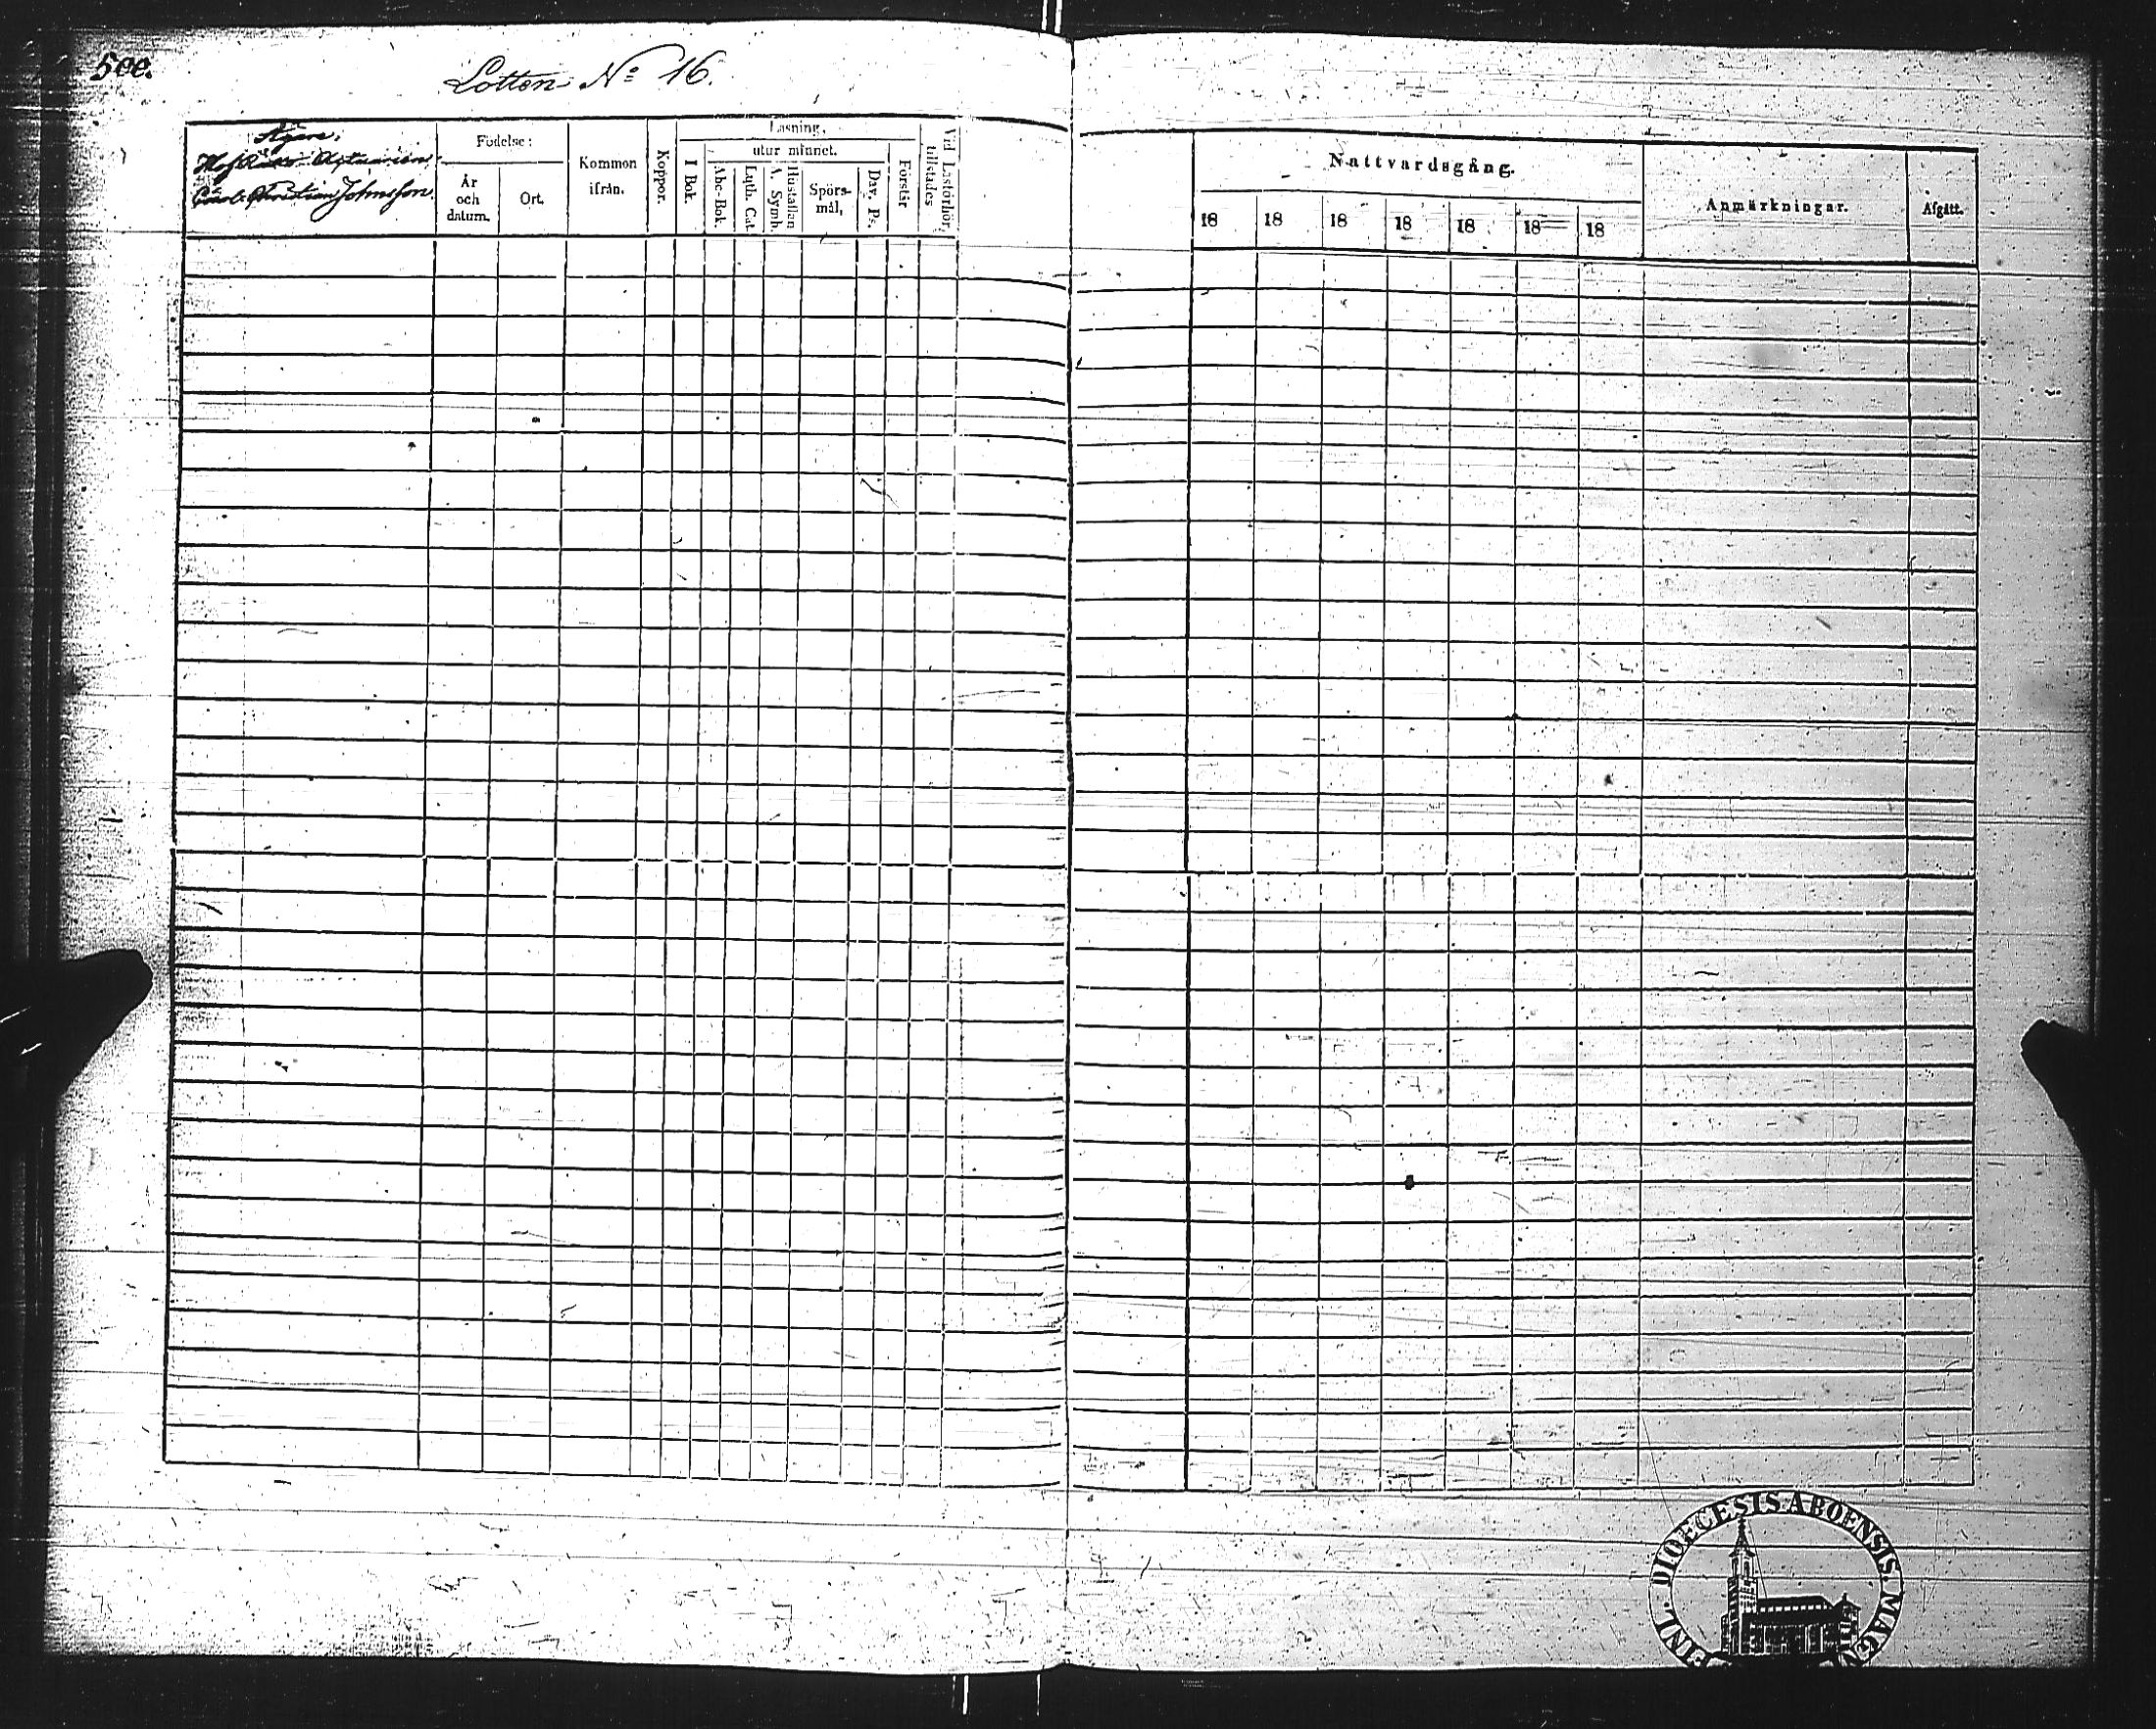 500.
Lotten N° 16.
Ägare,
HofRätts Actuarien
Carl Christian Johnsson.
Födelse:
År
och
datum.
Ort.
Kommon
ifrån.
Koppor.
Läsning,
I Bok.
utur minnet.
Abc-Bok.
Luth. Cat.
Hustaflan
A. Symb.
Spörs-
mål,
Dav. Ps.
Förstår
Vid Läsförhör.
tillstades
Nattvardsgång.
18 18 18 18 18 18 18
Anmärkningar.
Afgått.
DIOECESIS ABOENSIS. MAG